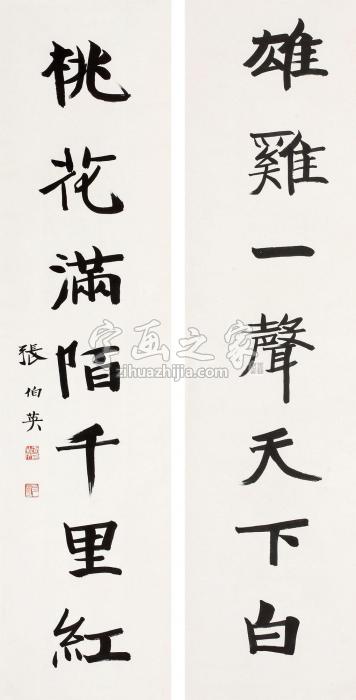 雄雞一聲天下白
桃花滿陌千里紅
張伯英
字画之家
zihuazhijia.com